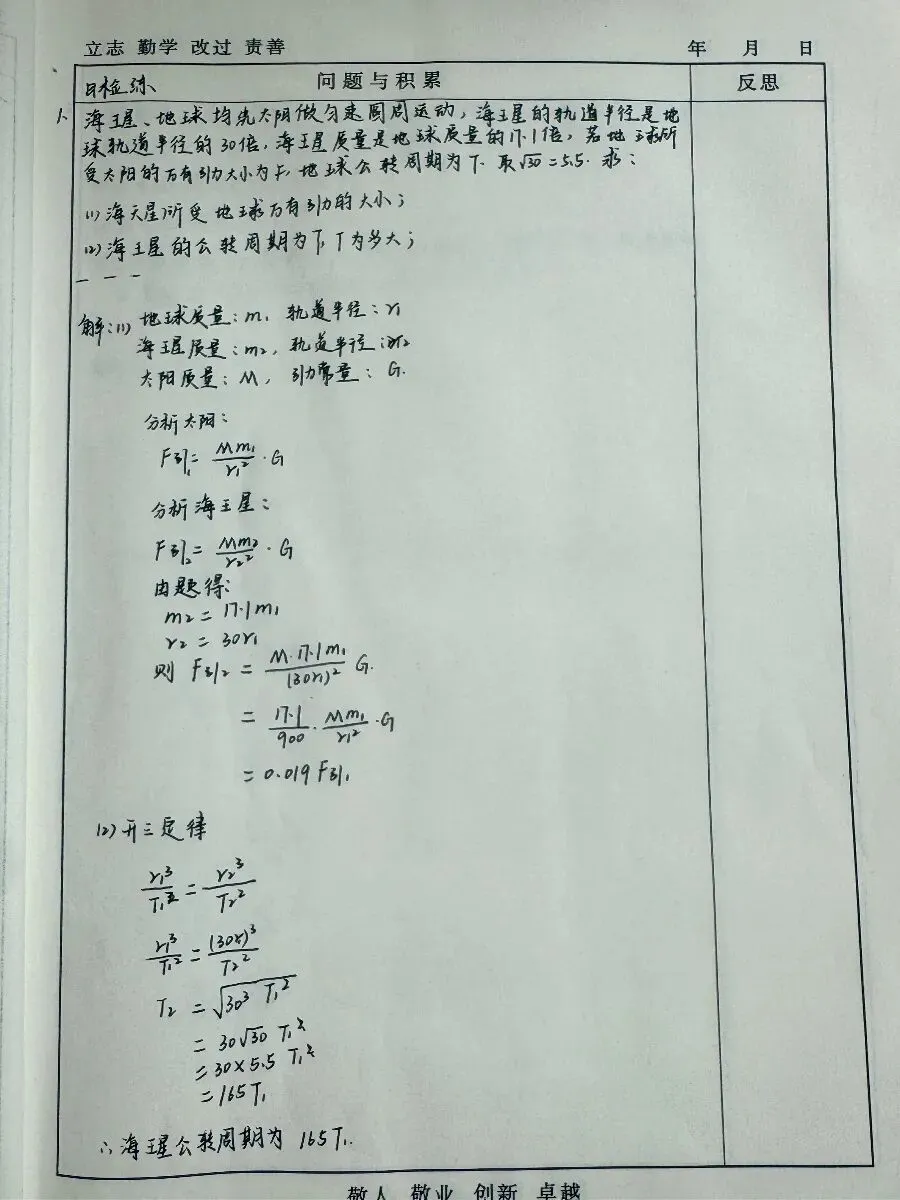 立志 勤学 改过 责善
年 月 日
日检练
问题与积累
反思
1、海王星、地球均绕太阳做匀速圆周运动，海王星的轨道半径是地
球轨道半径的30倍，海王星质量是地球质量的17.1倍，若地球所
受太阳的万有引力大小为F，地球公转周期为T. 取√30=5.5. 求：
(1) 海天星所受地球万有引力的大小；
(2) 海王星的公转周期为T, T为多大；
— — —
解：(1) 地球质量：m₁ 轨道半径：r₁
海王星质量：m₂, 轨道半径：r₂
太阳质量：M, 引力常量：G.
分析太阳：
F引₁ = Mm₁/r₁² · G
分析海王星：
F引₂ = Mm₂/r₂² · G
由题得：
m₂ = 17.1m₁
r₂ = 30r₁
则 F引₂ = M·17.1m₁/(30r₁)² G.
= 17.1/900 · Mm₁/r₁² · G
= 0.019 F引₁
(2) 开三定律
r₁³/T₁² = r₂³/T₂²
r₁³/T₁² = (30r)³/T₂²
T₂ = √(30³ T₁²)
= 30√30 T₁
= 30×5.5 T₁
= 165T₁
∴ 海王星公转周期为 165T₁.
敬人 敬业 创新 卓越